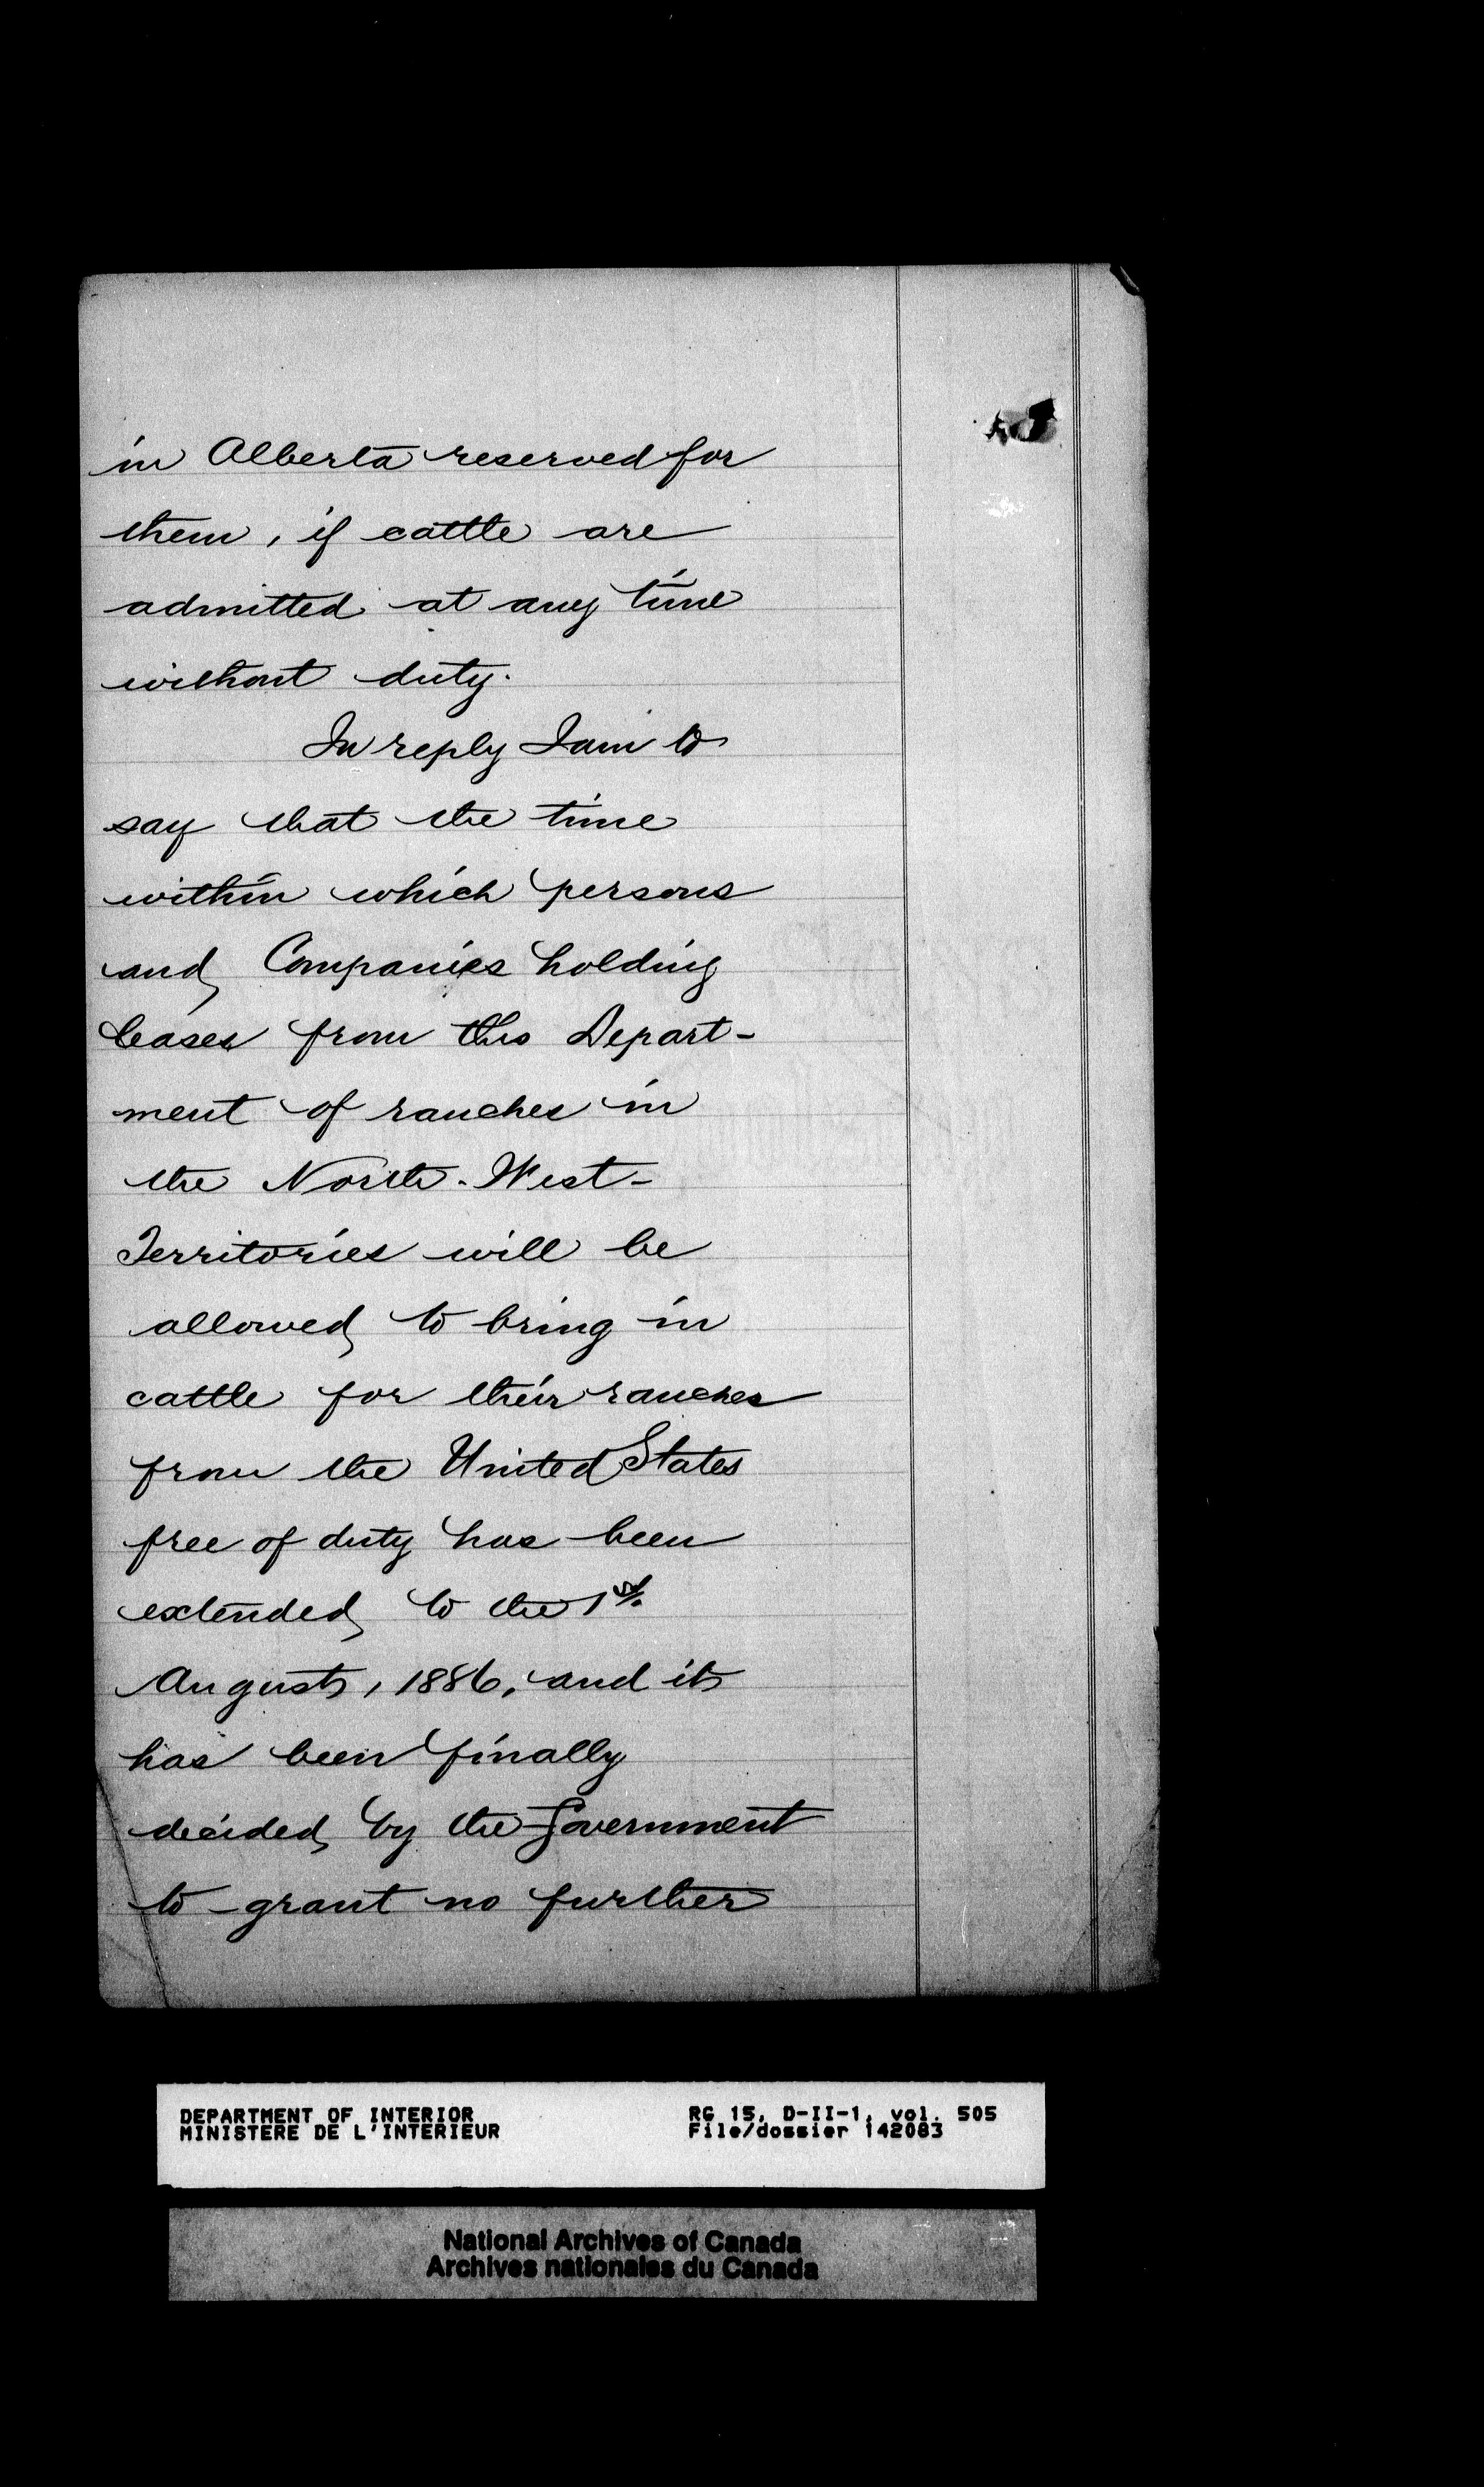 in Alberta reserved for
them, if cattle are
admitted at any time
without duty.
In reply I am to
say that the time
within which persons
and Companies holding
leases from this Depart-
ment of ranches in
the North-West-
Territories will be
allowed to bring in
cattle for their ranches
from the United States
free of duty has been
extended to the 1st
August, 1886, and it
has been finally
decided by the Government
to grant no further
DEPARTMENT OF INTERIOR
MINISTERE DE L'INTERIEUR
RG 15, D-II-1, vol. 505
File/dossier 142083
National Archives of Canada
Archives nationales du Canada